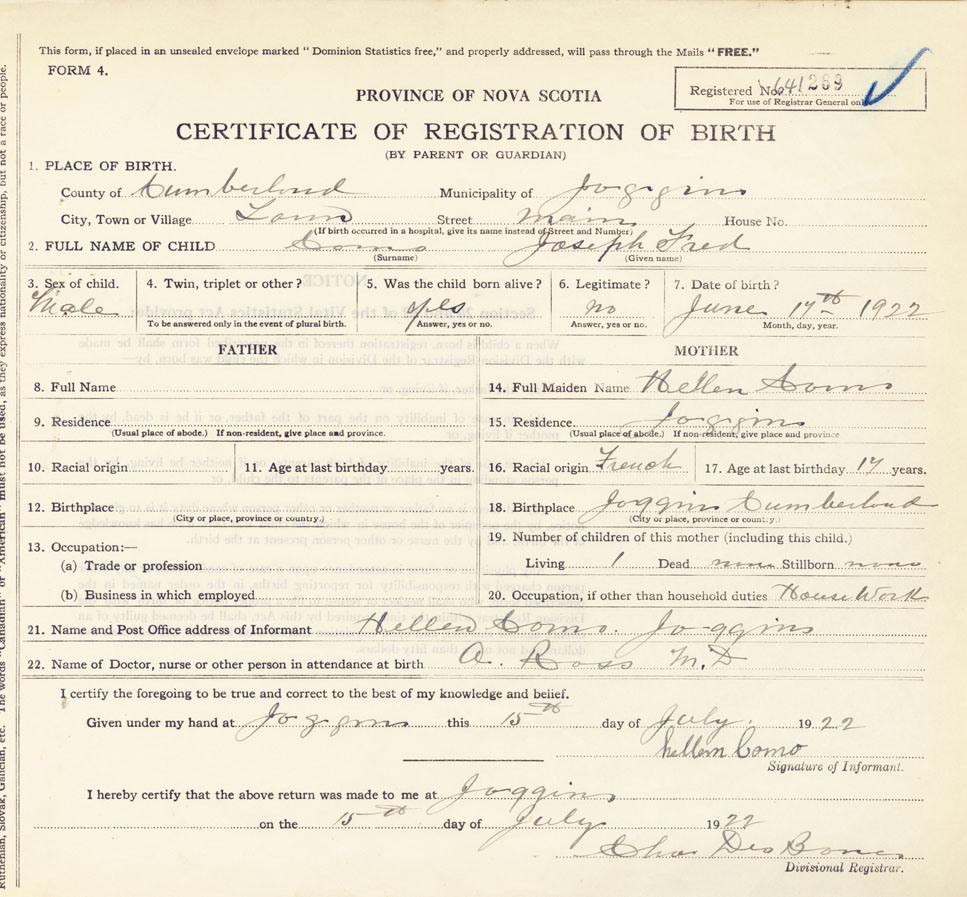 This form, if placed in an unsealed envelope marked "Dominion Statistics free," and properly addressed, will pass through the Mails "FREE."
FORM 4.
Registered No. 641289
For use of Registrar General only
PROVINCE OF NOVA SCOTIA
CERTIFICATE OF REGISTRATION OF BIRTH
(BY PARENT OR GUARDIAN)
1. PLACE OF BIRTH.
County of Cumberland Municipality of Joggins
City, Town or Village Town Street Main House No.
(If birth occurred in a hospital, give its name instead of Street and Number)
2. FULL NAME OF CHILD Como Joseph Fred
(Surname) (Given name)
3. Sex of child. 4. Twin, triplet or other? 5. Was the child born alive? 6. Legitimate? 7. Date of birth?
Male yes no June 17th 1922
To be answered only in the event of plural birth. Answer, yes or no. Answer, yes or no. Month, day, year.
FATHER MOTHER
8. Full Name 14. Full Maiden Name Hellen Como
9. Residence 15. Residence Joggins
(Usual place of abode.) If non-resident, give place and province. (Usual place of abode.) If non-resident, give place and province
10. Racial origin 11. Age at last birthday years. 16. Racial origin French 17. Age at last birthday 17 years.
12. Birthplace 18. Birthplace Joggins Cumberland
(City or place, province or country.) (City or place, province or country.)
13. Occupation:— 19. Number of children of this mother (including this child.)
(a) Trade or profession Living 1 Dead none Stillborn none
(b) Business in which employed 20. Occupation, if other than household duties House Work
21. Name and Post Office address of Informant Hellen Como. Joggins
22. Name of Doctor, nurse or other person in attendance at birth A. Ross M.D
I certify the foregoing to be true and correct to the best of my knowledge and belief.
Given under my hand at Joggins this 15th day of July. 1922
hellen Como
Signature of Informant.
I hereby certify that the above return was made to me at Joggins
on the 15th day of July 1922
Chas Des
Divisional Registrar.
Ruthenian, Slovak, Galician, etc. The words "Canadian" or "American" must not be used, as they express nationality or citizenship, but not a race or people.